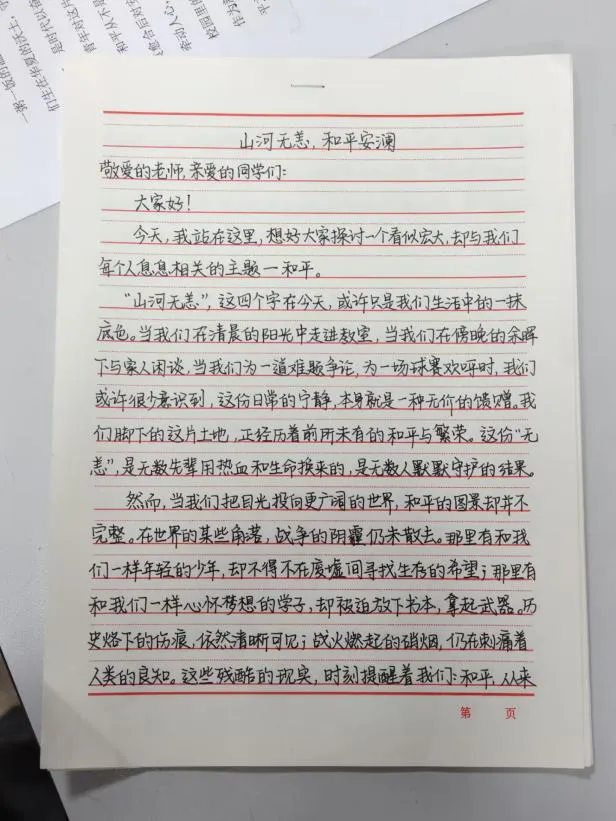 山河无恙,和平安澜
敬爱的老师,亲爱的同学们:
大家好!
今天,我站在这里,想好大家探讨一个看似宏大,却与我们
每个人息息相关的主题一和平。
“山河无恙”,这四个字在今天,或许只是我们生活中的一抹
底色。当我们在清晨的阳光中走进教室,当我们在傍晚的余晖
下与家人闲谈,当我们为一道难题争论,为一场球赛欢呼时,我们
或许很少意识到,这份日常的宁静,本身就是一种无价的馈赠。我
们脚下的这片土地,正经历着前所未有的和平与繁荣。这份“无
恙”,是无数先辈用热血和生命换来的,是无数人默默守护的结果。
然而,当我们把目光投向更广阔的世界,和平的图景却并不
完整。在世界的某些角落,战争的阴霾仍未散去。那里有和我
们一样年轻的少年,却不得不在废墟间寻找生存的希望;那里有
和我们一样心怀梦想的学子,却被迫放下书本,拿起武器。历
史烙下的伤痕,依然清晰可见;战火燃起的硝烟,仍在刺痛着
人类的良知。这些残酷的现实,时刻提醒着我们:和平,从来
第 页